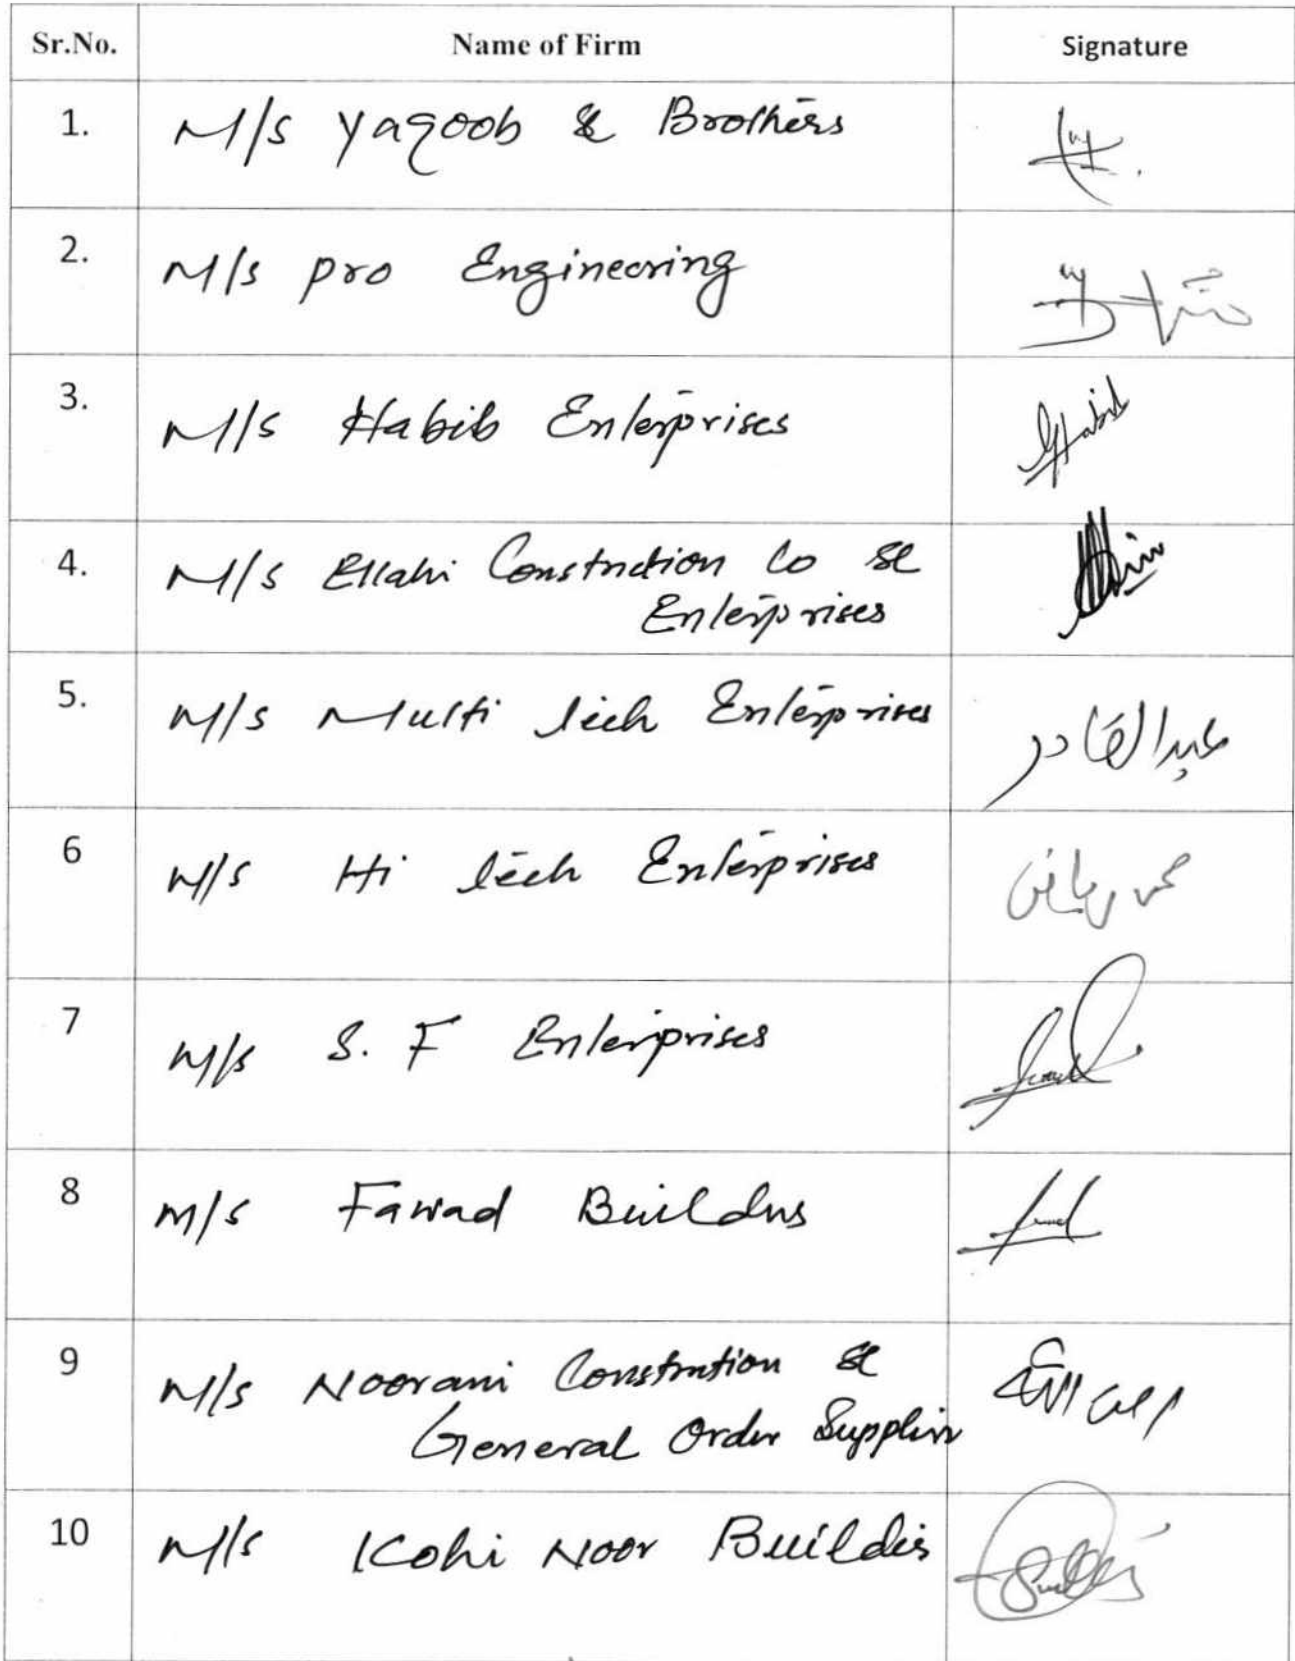 Sr.No. Name of Firm Signature
1. M/s Yaqoob & Brothers
2. M/s Pro Engineering
3. M/s Habib Enterprises Habib
4. M/s Ellahi Construction Co &
Enterprises
5. M/s Multi tech Enterprises عبدالقادر
6 M/s Hi tech Enterprises محمد ریاض
7 M/s S. F Enterprises
8 M/s Fawad Builders
9 M/s Noorani Constrution &
General Order Supplier
10 M/s Kohi Noor Builders